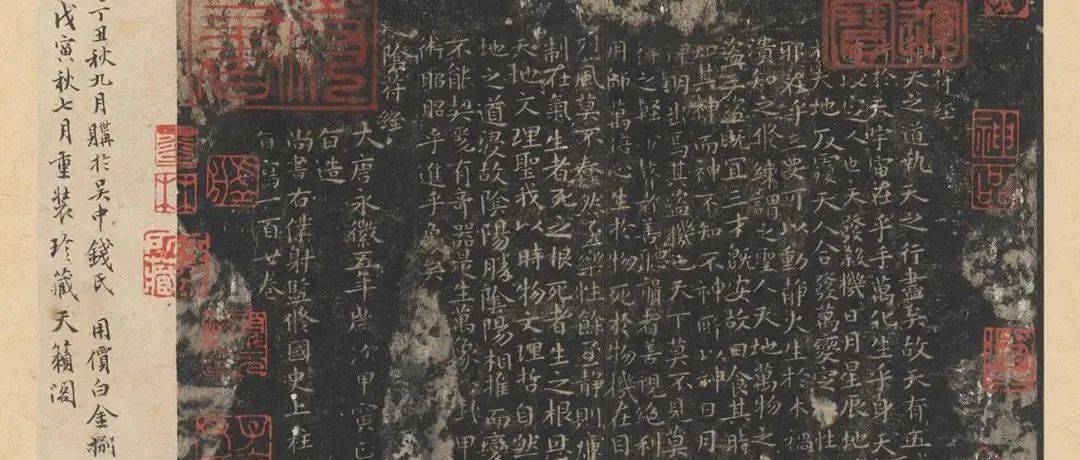 符經
天之道執天之行盡矣故天有五
於天宇宙在乎手萬化生乎身天
以定人也天發殺機日月星辰地
天地反覆天人合發萬變定性
邪在乎三要可以動靜火生於木禍
潰知之修練謂之聖人天地萬物之
盜三盜既宜三才既安故曰食其時
知其神而神不知不神所以神日月
神明出焉其盜機也天下莫不見莫
得之輕聾者善視絕利
用師萬倍心生於物死於物機在目
風莫不蠢然至樂性餘至靜則廉
制在氣生者死之根死者生之根恩
天地文理聖我以時物文理哲自然
地之道浸故陰陽勝陰陽相推而變
不能契爰有奇器是生萬象甲
術昭昭乎進乎象矣
陰符經
大唐永徽五年歲次甲寅正
旨造
尚書右僕射監修國史上柱
旨寫一百廿卷
神品
丁丑秋九月購於吳中錢氏 用價白金捌
戊寅秋七月重裝 珍藏天籟閣